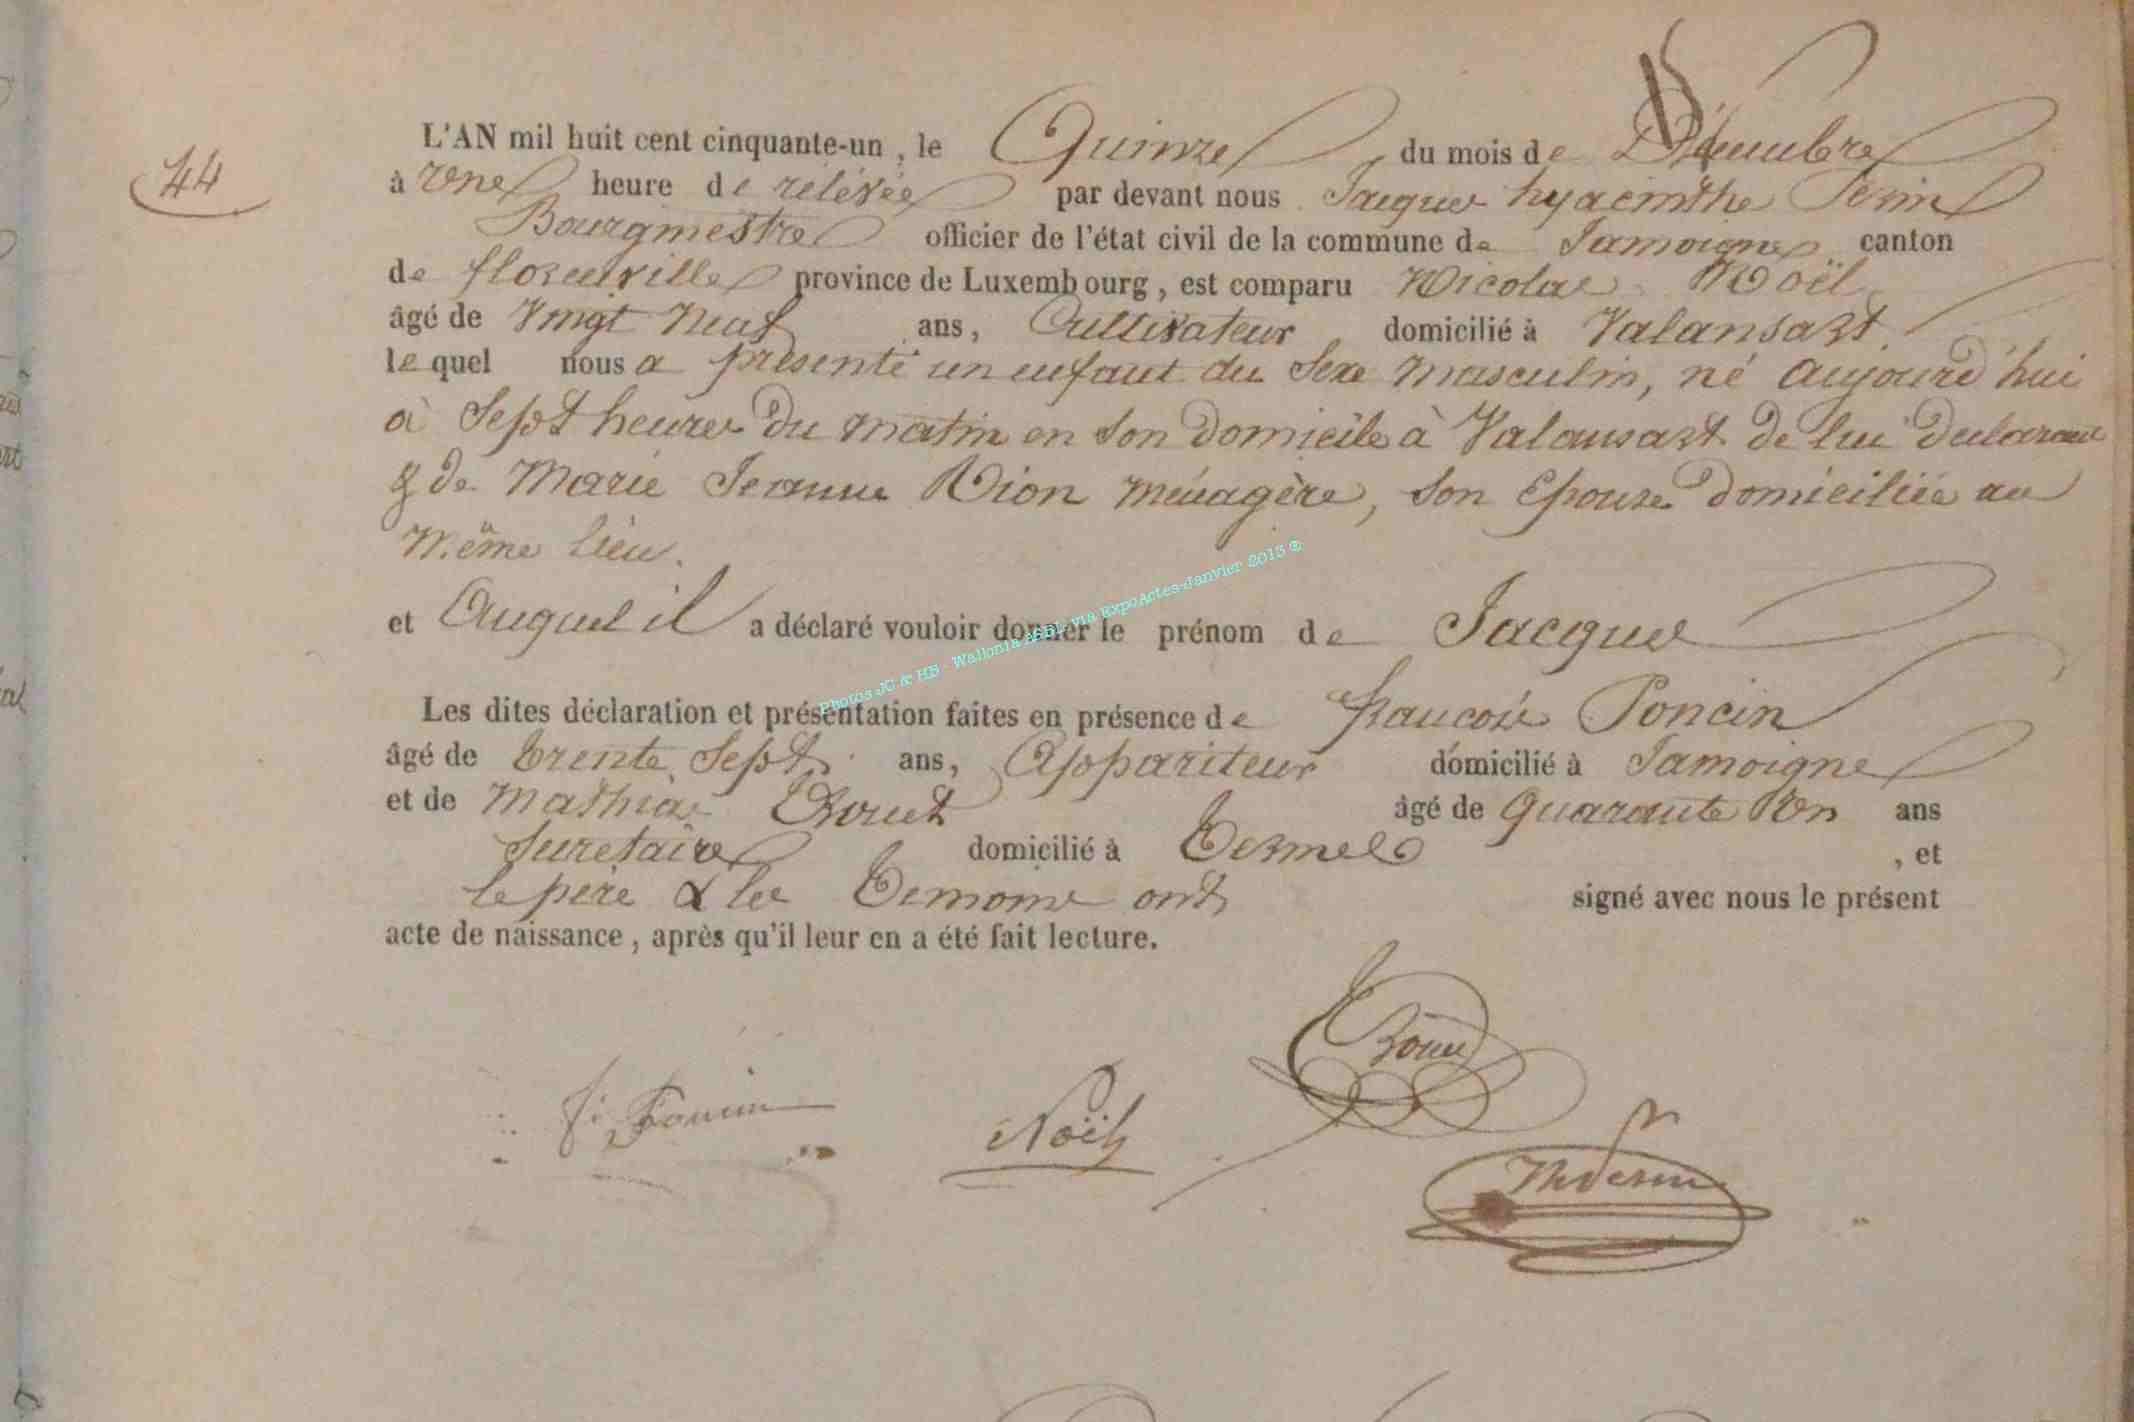 44
L'AN mil huit cent cinquante-un, le Quinze du mois de Décembre
à Une heure de relévée par devant nous Jacques hyacinthe
Bourgmestre officier de l'état civil de la commune de Jamoigne canton
de florenville province de Luxembourg, est comparu Nicolas Noël
âgé de Vingt Neuf ans, Cultivateur domicilié à Valansart
le quel nous a présenté un enfant du Sexe masculin, né aujourd'hui
à Sept heures du matin en son Domicile à Valansart de lui déclarant
& de Marie Jeanne Dion ménagère, son Epouse domiciliée au
même lieu.
et Auquel il a déclaré vouloir donner le prénom de Jacques
Photos JC & HB - Wallonia ASBL via ExpoActes-Janvier 2013 ®
Les dites déclaration et présentation faites en présence de françois Poncin
âgé de trente Sept ans, Appariteur domicilié à Jamoigne
et de Mathias âgé de quarante Un ans
Secretaire domicilié à Termes, et
le père & les Témoins ont signé avec nous le présent
acte de naissance, après qu'il leur en a été fait lecture.
Noël